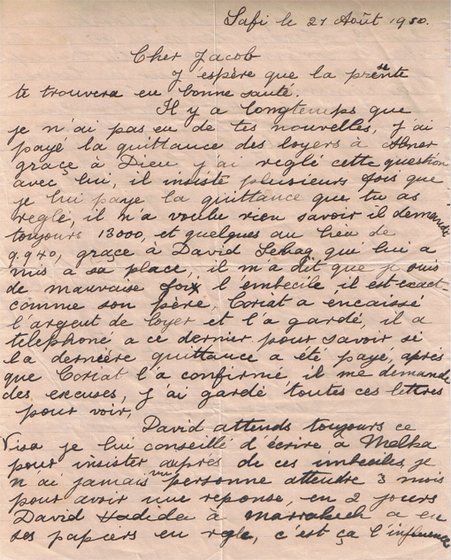 Safi le 21 Août 1950.
Cher Jacob
J'espère que la présente
te trouvera en bonne santé.
Il y a longtemps que
je n'ai pas eu de tes nouvelles, j'ai
payé la quittance des loyers à Abner
grâce à Dieu j'ai reglé cette question
avec lui, il insiste plusieurs fois que
je lui paye la quittance que tu as
reglé, il n'a voulu rien savoir il demande
toujours 13000, et quelques au lieu de
9.940, grace à David Sebag qui lui a
mis a sa place, il m'a dit que je suis
de mauvaise foix l'embecile il est exact
comme son père, Coriat a encaissé
l'argent de loyer et l'a gardé, il a
telephoné a ce dernier pour savoir si
la dernière quittance a été payé, après
que Coriat l'a confirmé il me demande
des excuses, j'ai gardé toutes ces lettres
pour voir,
David attends toujours ce
Visa je lui conseillé d'écrire à Malka
pour insister auprès de ces imbeciles, je
n'ai jamais vue personne attendre 3 mois
pour avoir une reponse, en 2 jours
David Hadida à Marrakech a eu
ses papiers en regle, c'est ça l'influence